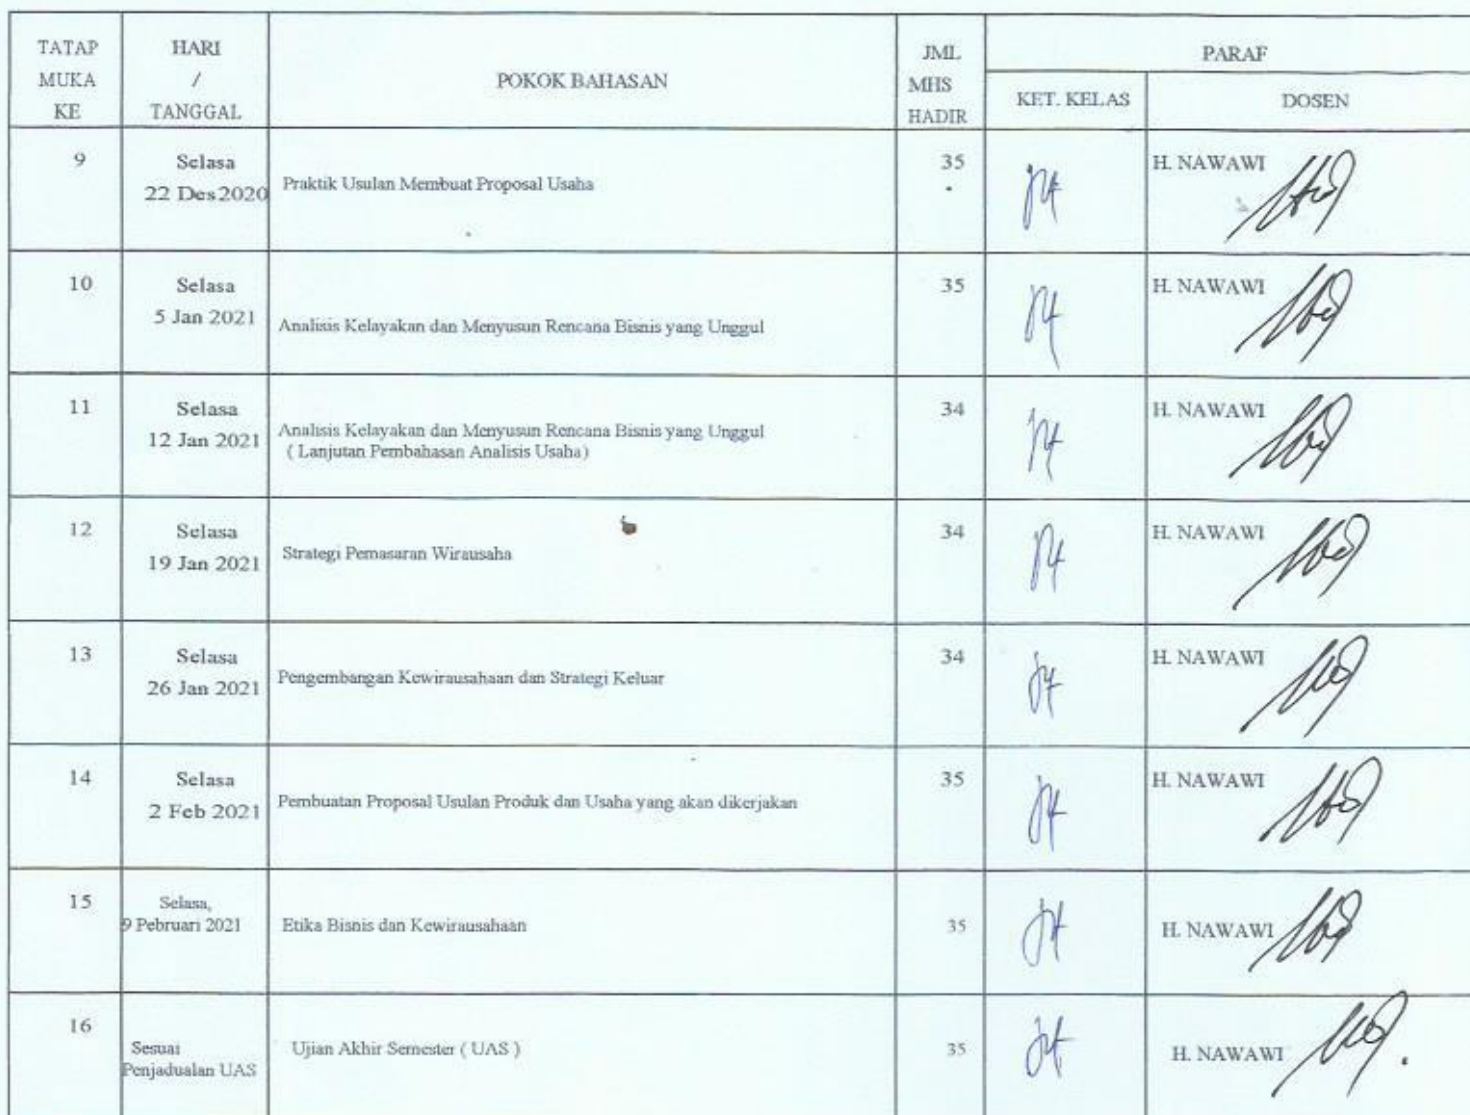 TATAP
MUKA
KE
HARI
/
TANGGAL
POKOK BAHASAN
JML
MHS
HADIR
PARAF
KET. KELAS
DOSEN
9
Selasa
22 Des 2020
Praktik Usulan Membuat Proposal Usaha
35
H. NAWAWI
10
Selasa
5 Jan 2021
Analisis Kelayakan dan Menyusun Rencana Bisnis yang Unggul
35
H. NAWAWI
11
Selasa
12 Jan 2021
Analisis Kelayakan dan Menyusun Rencana Bisnis yang Unggul
( Lanjutan Pembahasan Analisis Usaha)
34
H. NAWAWI
12
Selasa
19 Jan 2021
Strategi Pemasaran Wirausaha
34
H. NAWAWI
13
Selasa
26 Jan 2021
Pengembangan Kewirausahaan dan Strategi Keluar
34
H. NAWAWI
14
Selasa
2 Feb 2021
Pembuatan Proposal Usulan Produk dan Usaha yang akan dikerjakan
35
H. NAWAWI
15
Selasa,
9 Pebruari 2021
Etika Bisnis dan Kewirausahaan
35
H. NAWAWI
16
Sesuai
Penjadualan UAS
Ujian Akhir Semester ( UAS )
35
H. NAWAWI